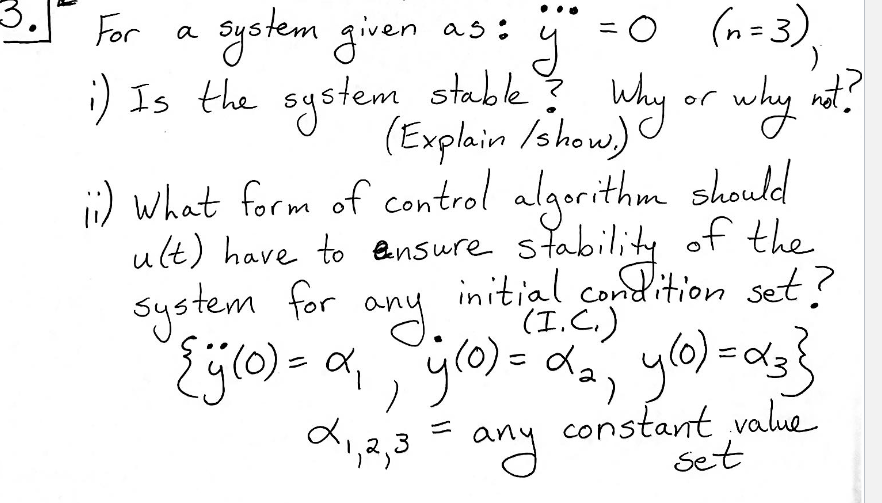 3. For a system given as: y⃛ = 0 (n=3),
i) Is the system stable? Why or why not?
(Explain/show.)
ii) What form of control algorithm should
u(t) have to ensure stability of the
system for any initial condition set?
(I.C.)
{ÿ(0) = α₁, ẏ(0) = α₂, y(0) = α₃}
α₁,₂,₃ = any constant value
set